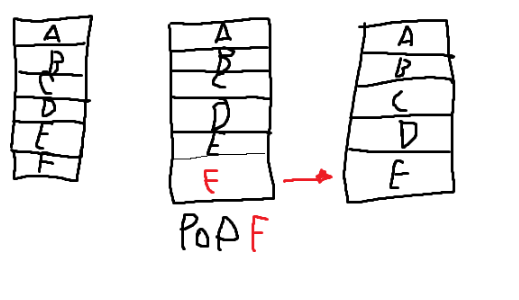 A
B
C
D
E
F
A
B
C
D
E
F
POP F
A
B
C
D
E